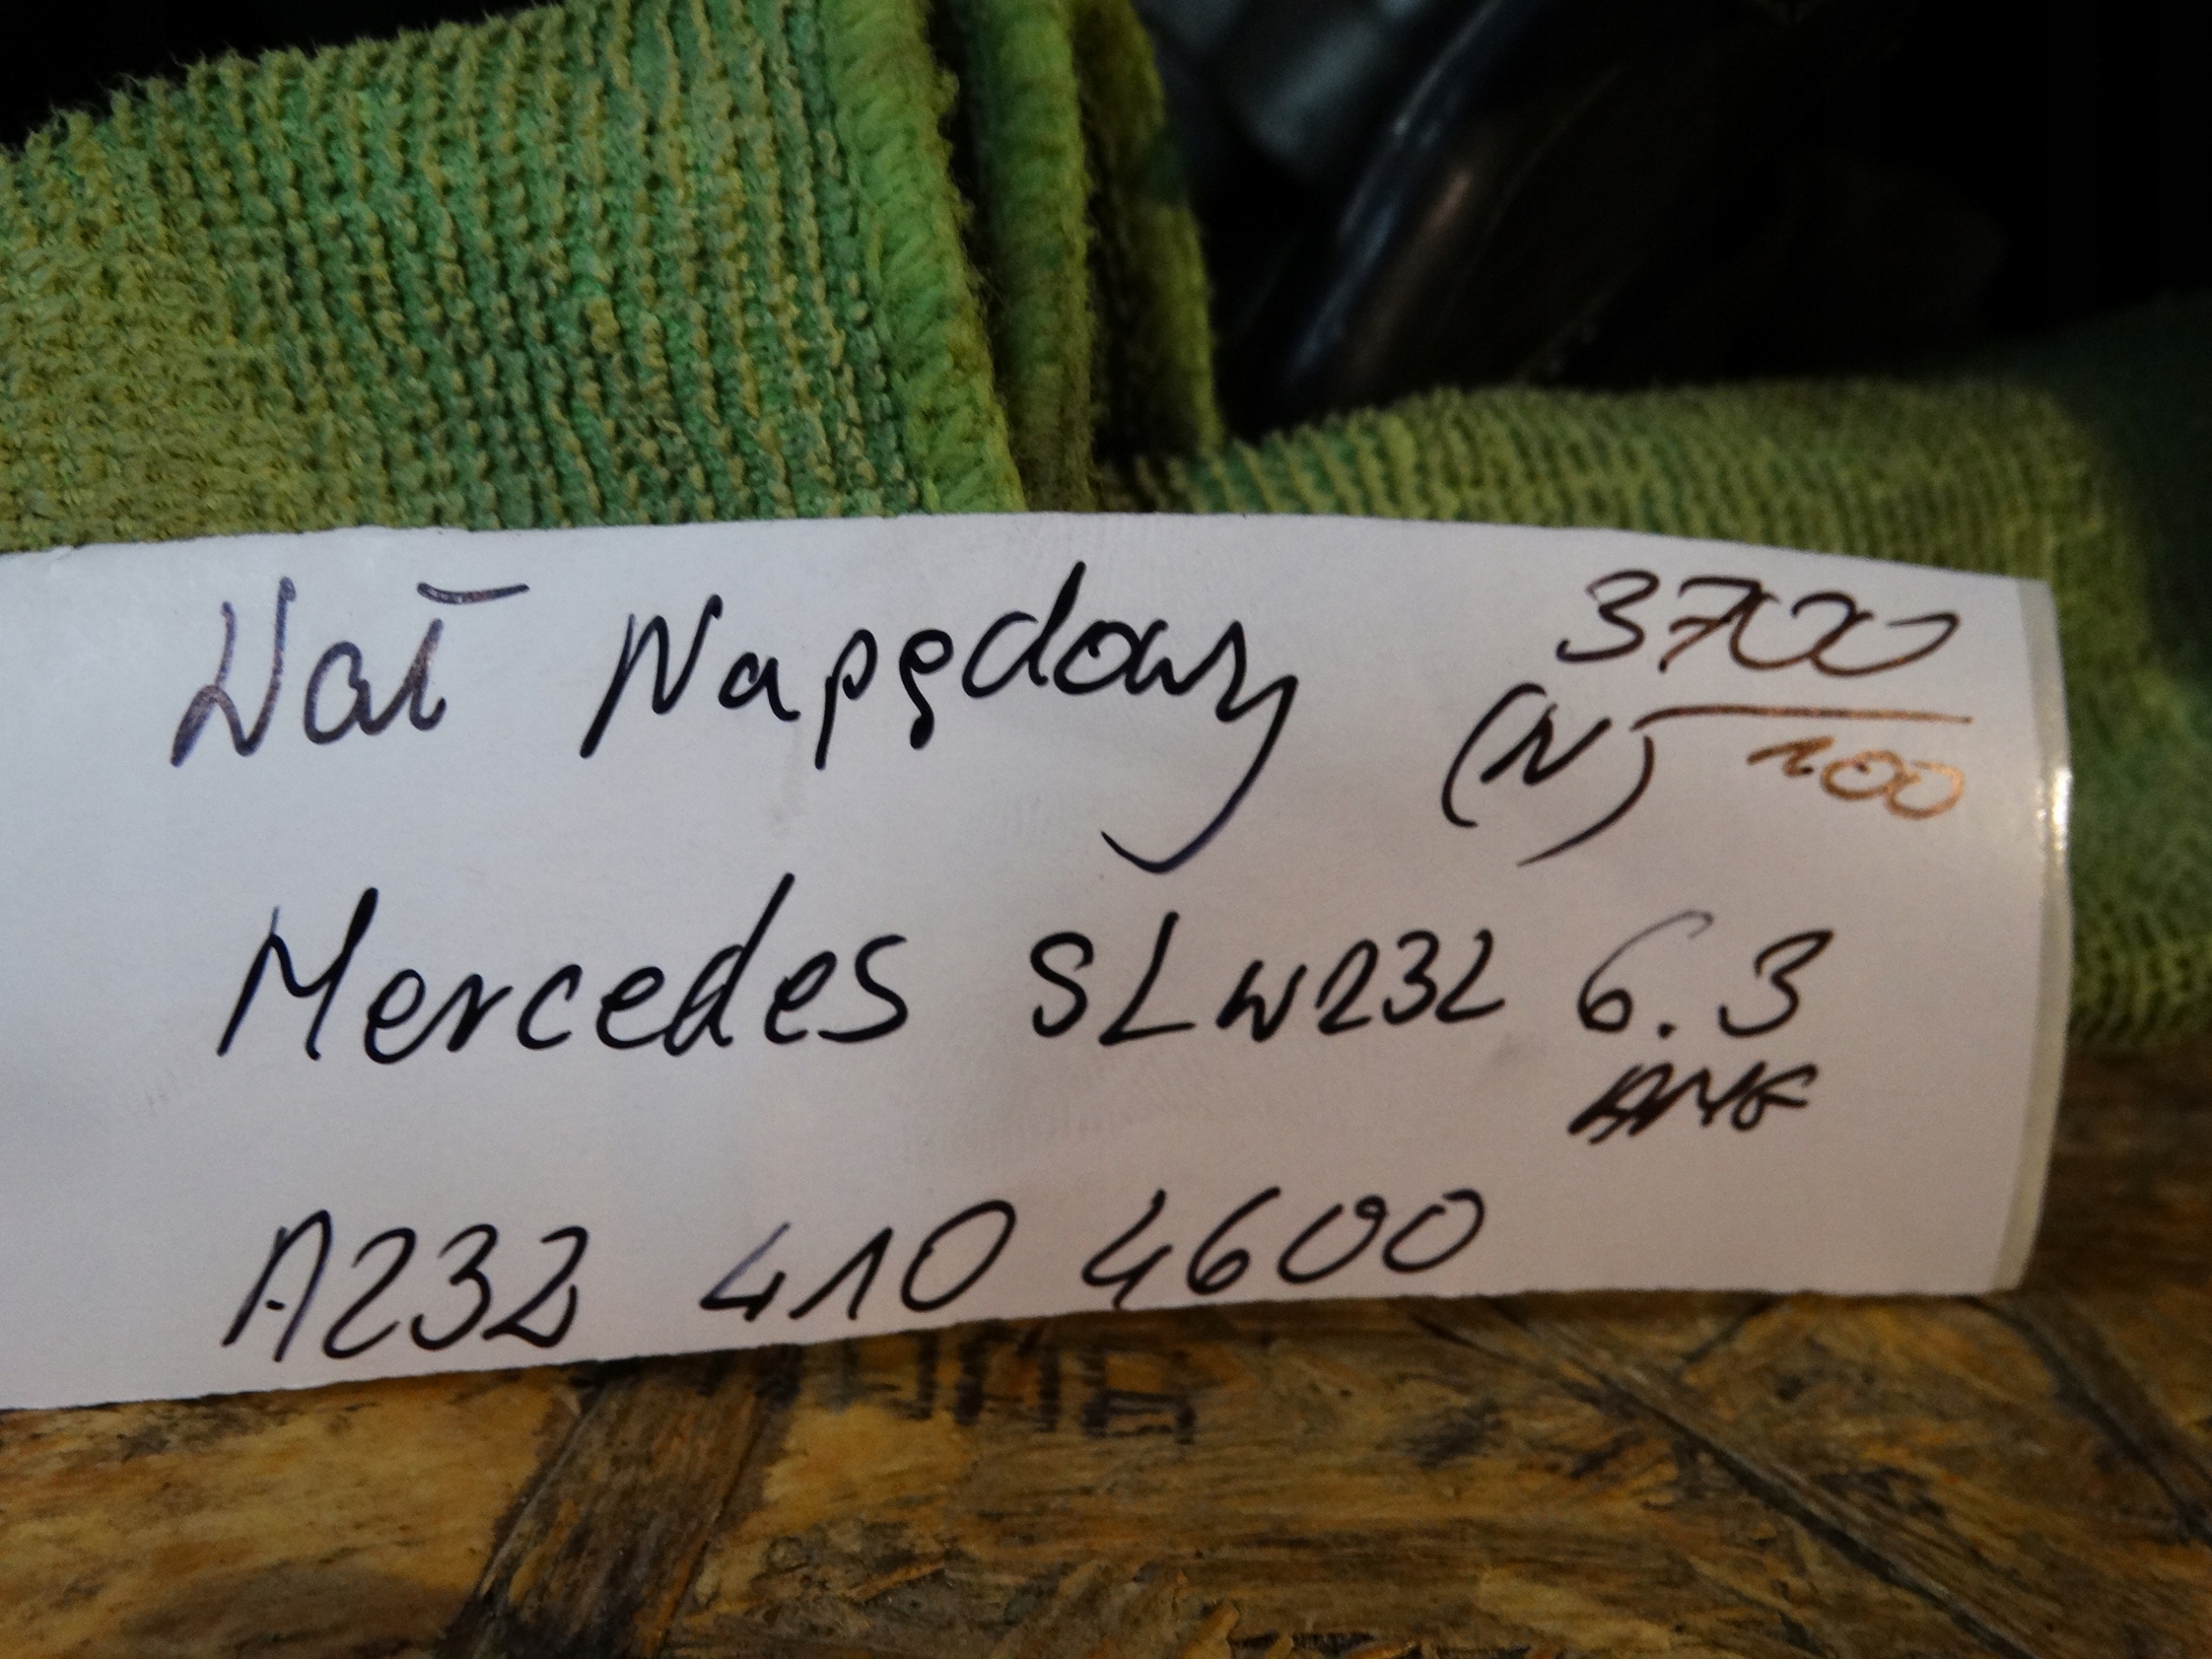 Wał Napędowy 3700
(N) 100
Mercedes SL W232 6.3
AMG
A232 410 4600